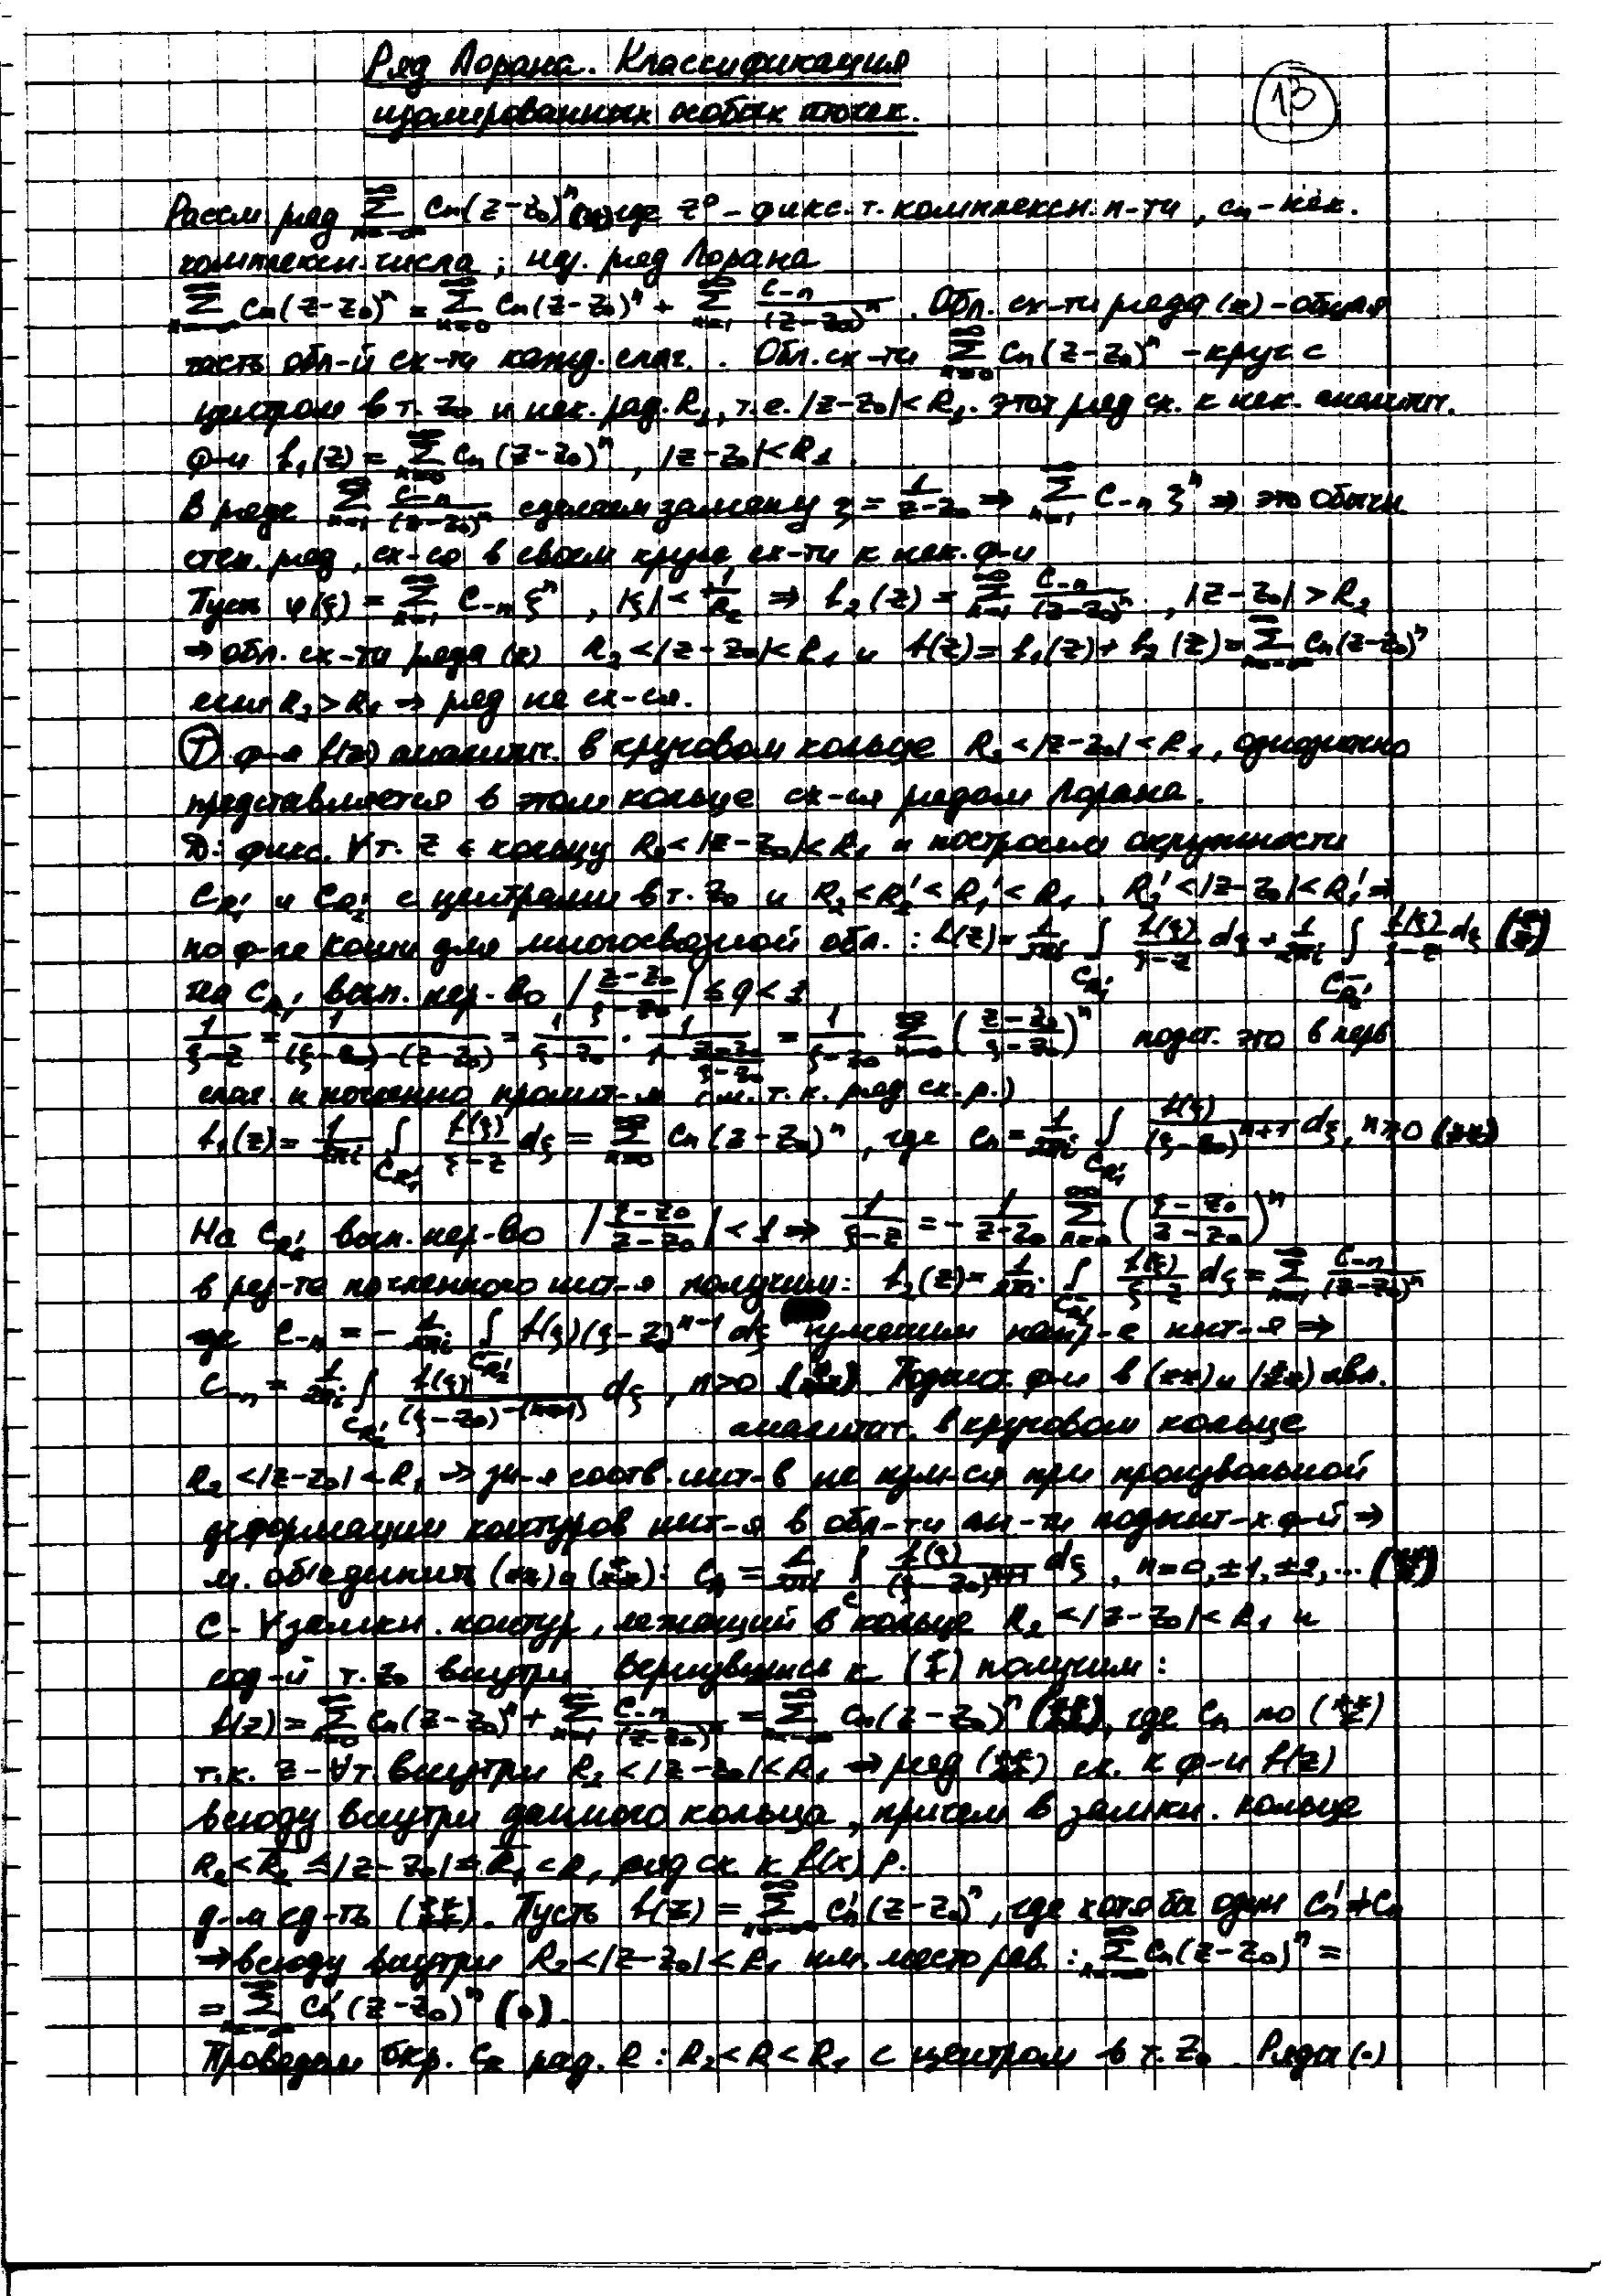 Ряд Лорана. Классификация
изолированных особых точек.
13
Рассм. ряд $\sum_{n=-\infty}^{\infty} c_n(z-z_0)^n$ (*) где z⁰ - фикс. т. комплексн. п-ти, cₙ - нек.
комплексн. числа ; наз. ряд Лорана
$\sum_{n=-\infty}^{\infty} c_n(z-z_0)^n = \sum_{n=0}^{\infty} c_n(z-z_0)^n + \sum_{n=1}^{\infty} \frac{c_{-n}}{(z-z_0)^n}$. Обл. сх-ти ряда (*) - общая
часть обл-й сх-ти кажд. слаг. . Обл. сх-ти $\sum_{n=0}^{\infty} c_n(z-z_0)^n$ - круг с
центром в т. z₀ и нек. рад. R₁, т.е. |z-z₀|<R₁. этот ряд сх. к нек. аналит.
ф-и $f_1(z) = \sum_{n=0}^{\infty} c_n(z-z_0)^n$, |z-z₀|<R₁.
В ряде $\sum_{n=1}^{\infty} \frac{c_{-n}}{(z-z_0)^n}$ сделаем замену $\xi = \frac{1}{z-z_0} \Rightarrow \sum_{n=1}^{\infty} c_{-n} \xi^n$ ⇒ это обычн
степ. ряд, сх-ся в своем круге сх-ти к нек. ф-и
Пусть $\varphi(\xi) = \sum_{n=1}^{\infty} c_{-n}\xi^n$, $|\xi| < \frac{1}{R_2} \Rightarrow f_2(z) = \sum_{n=1}^{\infty} \frac{c_{-n}}{(z-z_0)^n}$, |z-z₀| > R₂
⇒ обл. сх-ти ряда (*) R₂<|z-z₀|<R₁ и $f(z) = f_1(z) + f_2(z) = \sum_{n=-\infty}^{\infty} c_n(z-z_0)^n$
если R₂>R₁ → ряд не сх-ся.
Ⓣ ф-я f(z) аналит. в круговом кольце R₂<|z-z₀|<R₁, однозначно
представляется в этом кольце сх-ся рядом Лорана.
Д: фикс. ∀ т. z ∈ кольцу R₂<|z-z₀|<R₁ и построим окружности
$C_{R_1'}$ и $C_{R_2'}$ с центрами в т. z₀ и R₂<R₂'<R₁'<R₁, R₂'<|z-z₀|<R₁' ⇒
по ф-ле Коши для многосвязной обл. : $f(z) = \frac{1}{2\pi i}\int_{C_{R_1'}} \frac{f(\xi)}{\xi-z}d\xi + \frac{1}{2\pi i}\int_{C^-_{R_2'}} \frac{f(\xi)}{\xi-z}d\xi$ (*̲*)
На $C_{R_1'}$ вып. нер-во $|\frac{z-z_0}{\xi-z_0}| \le q < 1$
$\frac{1}{\xi-z} = \frac{1}{(\xi-z_0)-(z-z_0)} = \frac{1}{\xi-z_0} \cdot \frac{1}{1-\frac{z-z_0}{\xi-z_0}} = \frac{1}{\xi-z_0}\sum_{n=0}^{\infty}(\frac{z-z_0}{\xi-z_0})^n$ подст. это в перв
слаг. и почленно проинт-м (м. т. к. ряд сх. р.)
$f_1(z) = \frac{1}{2\pi i}\int_{C_{R_1'}} \frac{f(\xi)}{\xi-z}d\xi = \sum_{n=0}^{\infty} c_n(z-z_0)^n$, где $c_n = \frac{1}{2\pi i}\int_{C_{R_1'}} \frac{f(\xi)}{(\xi-z_0)^{n+1}}d\xi$, n≥0 (**)
На $C_{R_2'}$ вып. нер-во $|\frac{\xi-z_0}{z-z_0}| < 1 \Rightarrow \frac{1}{\xi-z} = -\frac{1}{z-z_0}\sum_{n=0}^{\infty}(\frac{\xi-z_0}{z-z_0})^n$
в рез-те почленного инт-я получим: $f_2(z) = \frac{1}{2\pi i}\int_{C^-_{R_2'}} \frac{f(\xi)}{\xi-z}d\xi = \sum_{n=1}^{\infty} \frac{c_{-n}}{(z-z_0)^n}$
где $c_{-n} = -\frac{1}{2\pi i}\int_{C^-_{R_2'}} f(\xi)(\xi-z)^{n-1}d\xi$ изменим напр-е инт-я ⇒
$c_{-n} = \frac{1}{2\pi i}\int_{C_{R_2'}} \frac{f(\xi)}{(\xi-z_0)^{-(n-1)}}d\xi$, n>0 (***). Подынт. ф-и в (**) и (***) явл.
аналитич. в круговом кольце
R₂<|z-z₀|<R₁ → зн-я соотв. инт-в не изм-ся при произвольной
деформации контуров инт-я в обл-ти ан-ти подынт-х ф-й ⇒
м. объединить (**) и (***): $c_n = \frac{1}{2\pi i}\int_{C} \frac{f(\xi)}{(\xi-z_0)^{n+1}}d\xi$, n=0,±1,±2,... (***)
C - ∀ замкн. контур, лежащий в кольце R₂<|z-z₀|<R₁ и
сод-й т. z₀ внутри. Вернувшись к (*̲*) получим:
$f(z) = \sum_{n=0}^{\infty} c_n(z-z_0)^n + \sum_{n=1}^{\infty} \frac{c_{-n}}{(z-z_0)^n} = \sum_{n=-\infty}^{\infty} c_n(z-z_0)^n$ (****), где cₙ по (***)
т.к. z - ∀ т. внутри R₂<|z-z₀|<R₁ ⇒ ряд (****) сх. к ф-и f(z)
всюду внутри данного кольца, причем в замкн. кольце
$R_2 < \overline{R_2} \le |z-z_0| \le \overline{R_1} < R_1$ ряд сх к f(x) р.
д-м ед-ть (****). Пусть $f(z) = \sum_{n=-\infty}^{\infty} c_n'(z-z_0)^n$, где хотя ба один cₙ'≠cₙ
⇒ всюду внутри R₂<|z-z₀|<R₁ им. место рав. : $\sum_{n=-\infty}^{\infty} c_n(z-z_0)^n =$
$= \sum_{n=-\infty}^{\infty} c_n'(z-z_0)^n$ (•)
Проведем окр. $C_R$ рад. R : R₂<R<R₁ с центром в т. z₀. Ряды (•)